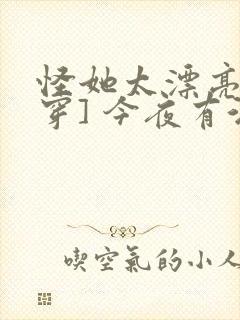 怪她太漂亮
穿] 今夜有
喫空氣的小人